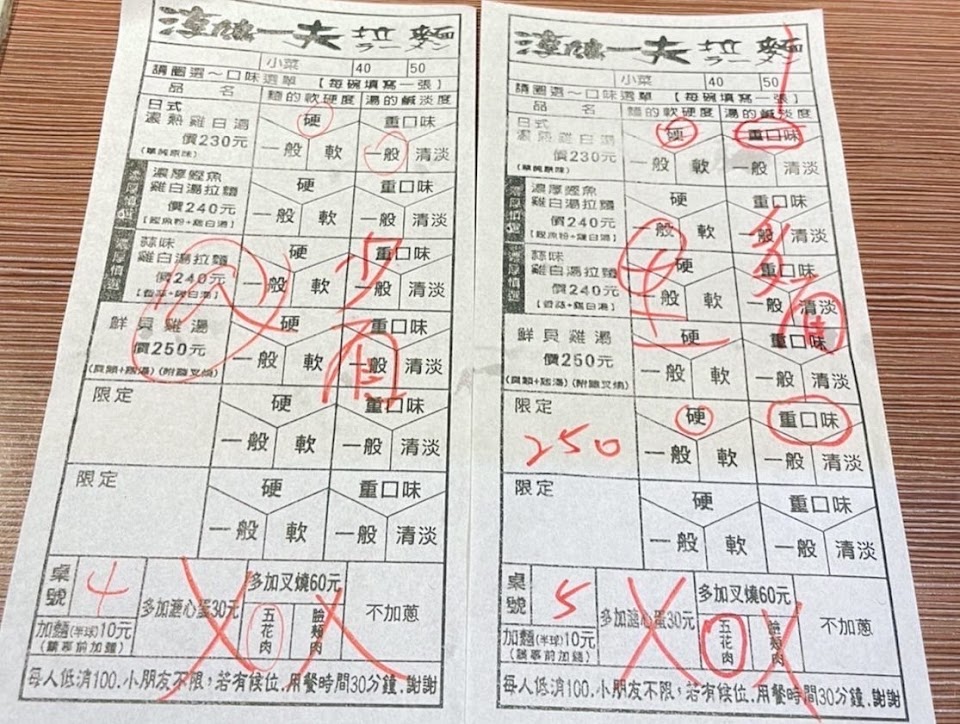 淳陽一夫 拉麵
ラーメン
小菜 40 50
請圈選～口味選單【每碗填寫一張】
品名 麵的軟硬度 湯的鹹淡度
日式
濃熱雞白湯
價230元
(單純原味)
硬 重口味
一般 軟 一般 清淡
濃厚鰹魚
雞白湯拉麵
價240元
【鰹魚粉+雞白湯】
硬 重口味
一般 軟 一般 清淡
蒜味
雞白湯拉麵
價240元
【香蒜+雞白湯】
硬 重口味
一般 軟 一般 清淡
鮮貝雞湯
價250元
(貝類+雞湯)(附雞叉燒)
硬 重口味
一般 軟 一般 清淡
限定
硬 重口味
一般 軟 一般 清淡
限定
硬 重口味
一般 軟 一般 清淡
桌號 4
加麵(半球)10元
多加溏心蛋30元
多加叉燒60元
五花肉
臉頰肉
不加蔥
每人低消100.小朋友不限，若有候位.用餐時間30分鐘.謝謝
一夫 拉麵
ラーメン
小菜 40 50
請圈選～口味選單【每碗填寫一張】
品名 麵的軟硬度 湯的鹹淡度
日式
濃熱雞白湯
價230元
(單純原味)
硬 重口味
一般 軟 一般 清淡
濃厚鰹魚
雞白湯拉麵
價240元
【鰹魚粉+雞白湯】
硬 重口味
一般 軟 一般 清淡
蒜味
雞白湯拉麵
價240元
【香蒜+雞白湯】
硬 重口味
一般 軟 一般 清淡
鮮貝雞湯
價250元
(貝類+雞湯)(附雞叉燒)
硬 重口味
一般 軟 一般 清淡
限定
250
硬 重口味
一般 軟 一般 清淡
限定
硬 重口味
一般 軟 一般 清淡
桌號 5
加麵(半球)10元
多加溏心蛋30元
多加叉燒60元
五花肉
臉頰肉
不加蔥
每人低消100.小朋友不限，若有候位.用餐時間30分鐘.謝謝